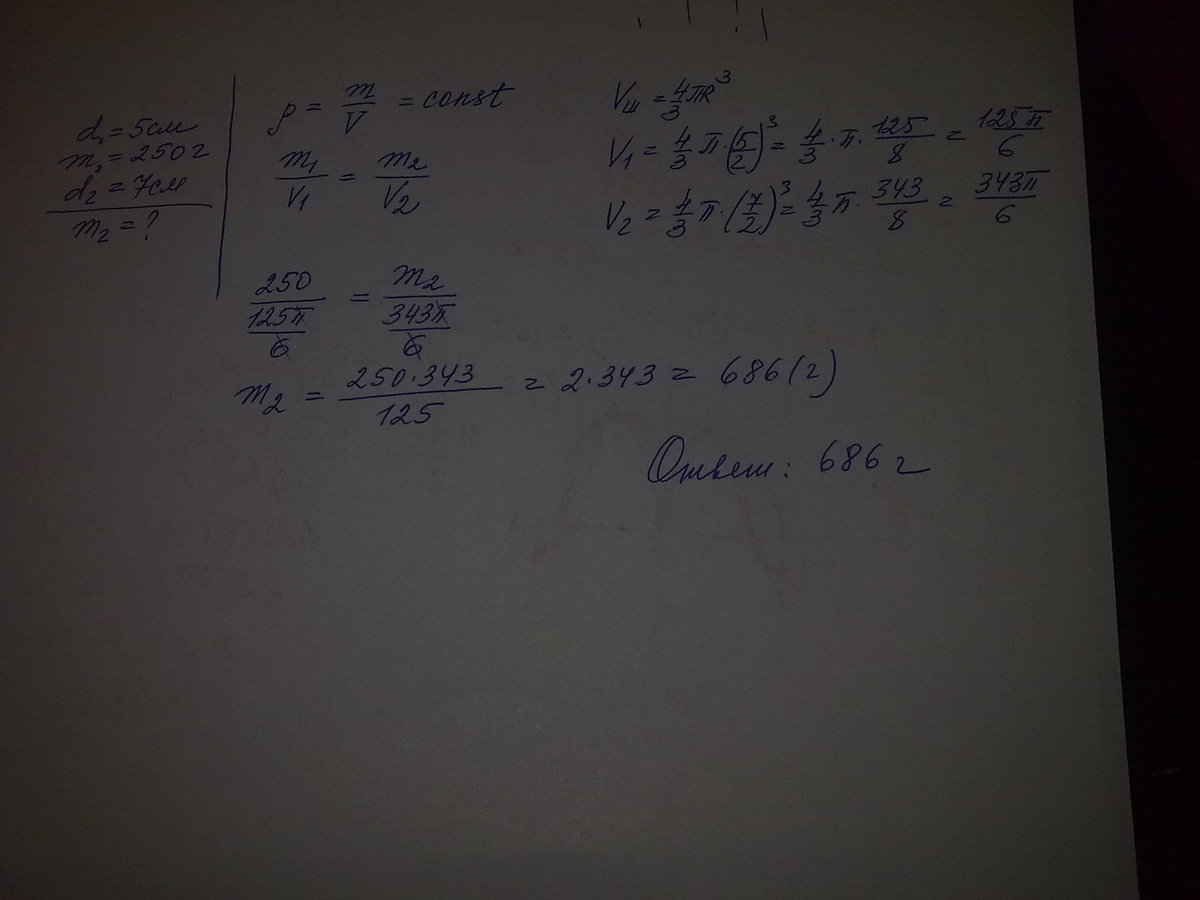 d₁ = 5см
m₁ = 250г
d₂ = 7см
m₂ = ?
ρ = m/V = const
m₁/V₁ = m₂/V₂
Vш = 4/3 πR³
V₁ = 4/3 π·(5/2)³ = 4/3 · π · 125/8 = 125π/6
V₂ = 4/3 π·(7/2)³ = 4/3 π · 343/8 = 343π/6
250/(125π/6) = m₂/(343π/6)
m₂ = 250·343/125 = 2·343 = 686 (г)
Ответ: 686 г